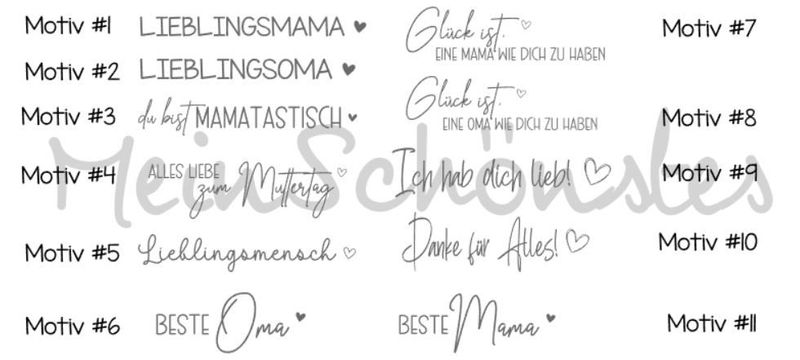 Motiv #1 LIEBLINGSMAMA
Motiv #2 LIEBLINGSOMA
Motiv #3 du bist MAMATASTISCH
Motiv #4 ALLES LIEBE
zum Muttertag
Motiv #5 Lieblingsmensch
Motiv #6 BESTE Oma
Glück ist. Motiv #7
EINE MAMA WIE DICH ZU HABEN
Glück ist. Motiv #8
EINE OMA WIE DICH ZU HABEN
Ich hab dich lieb! Motiv #9
Danke für Alles! Motiv #10
BESTE Mama Motiv #11
MeinSchönstes